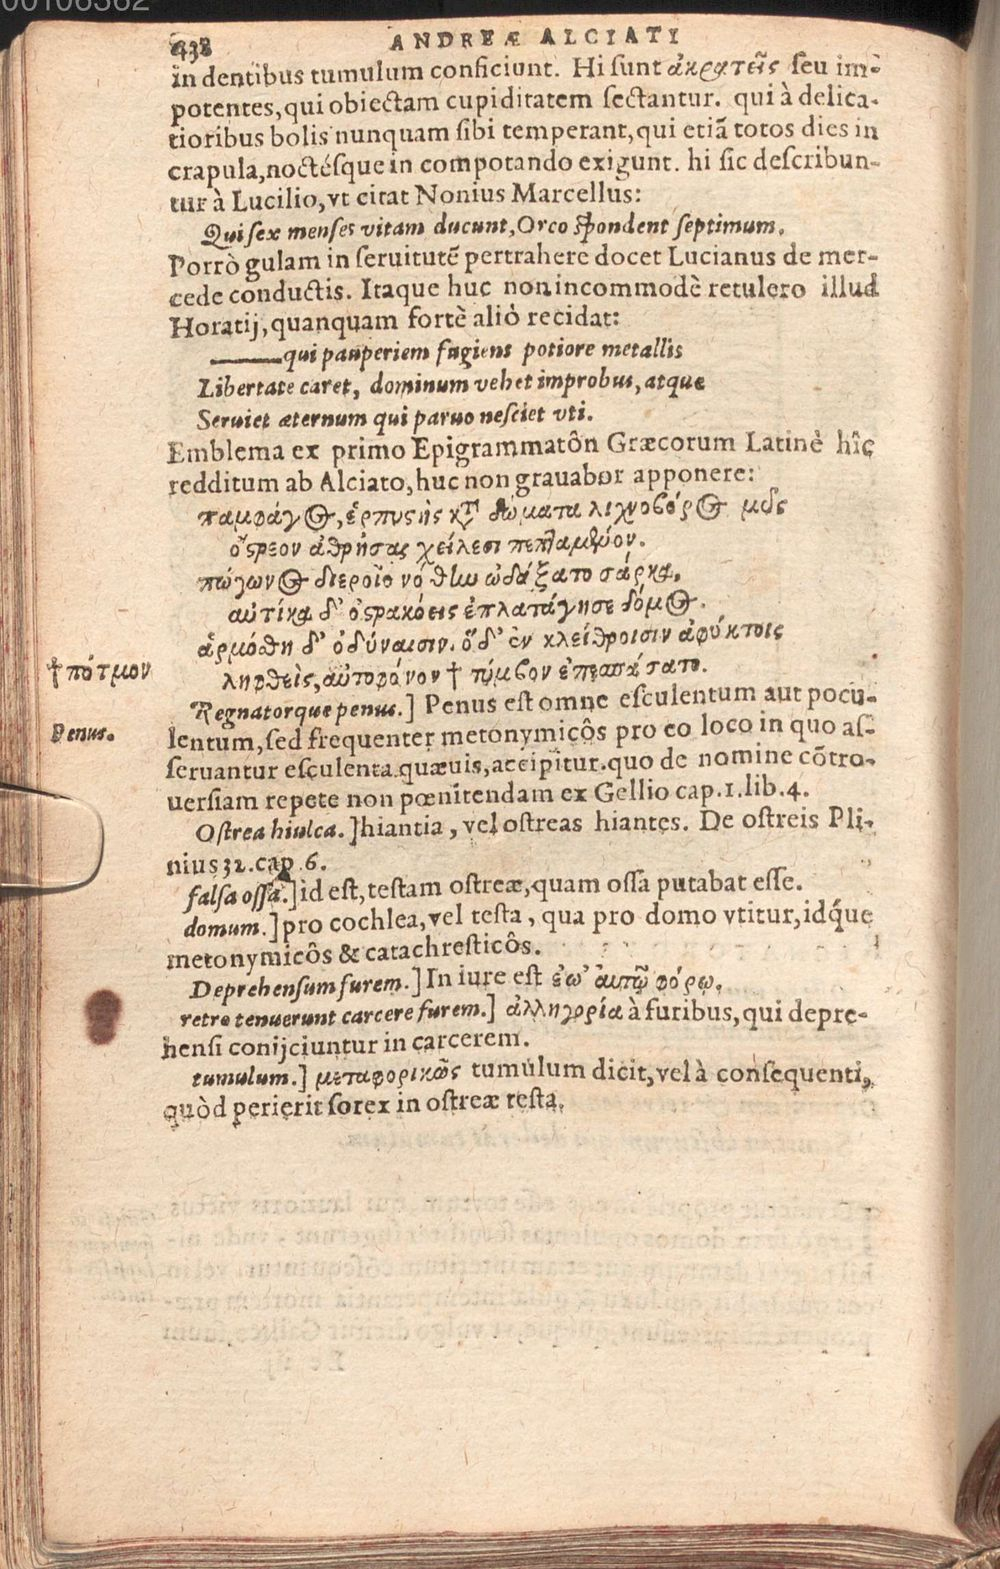 00106362
438 ANDREÆ ALCIATI
indentibus tumulum conficiunt. Hi sunt ἀκρατεῖς seu im-
potentes, qui obiectam cupiditatem sectantur. qui à delica-
tioribus bolis nunquam sibi temperant, qui etiã totos dies in
crapula, noctésque in compotando exigunt. hi sic describun-
tur à Lucilio, vt citat Nonius Marcellus:
Qui sex menses vitam ducunt, Orco spondent septimum.
Porrò gulam in seruitutẽ pertrahere docet Lucianus de mer-
cede conductis. Itaque huc non incommodè retulero illud
Horatij, quanquam fortè aliò recidat:
——qui pauperiem fugiens potiore metallis
Libertate caret, dominum vehet improbus, atque
Seruiet æternum qui paruo nesciet vti.
Emblema ex primo Epigrammatôn Græcorum Latinè hîc
redditum ab Alciato, huc non grauabor apponere:
παμφάγος, ἑρπυστὴς κατὰ δώματα λιχνοβόρος μῦς
ὄστρεον ἀθρήσας χείλεσι πεπταμένον.
πώγωνος διεροῖο νόθην ὠδάξατο σάρκα,
αὐτίκα δ' ὀστρακόεις ἐπλατάγησε δόμος.
ἁρμόσθη δ' ὀδύναισιν. ὅδ' ἐν κλείθροισιν ἀφύκτοις
† πότμον
ληφθεὶς, αὐτοφόνον † τύμβον ἐπεσπάσατο.
Regnatorque penus.] Penus est omne esculentum aut pocu-
Penus.
lentum, sed frequenter metonymicôs pro eo loco in quo as-
seruantur esculenta quæuis, accipitur. quo de nomine cõtro-
uersiam repete non pœnitendam ex Gellio cap. 1. lib. 4.
Ostrea hiulca.] hiantia, vel ostreas hiantes. De ostreis Pli-
nius 32. cap. 6.
falsa ossa.] id est, testam ostreæ, quam ossa putabat esse.
domum.] pro cochlea, vel testa, qua pro domo vtitur, idq́ue
metonymicôs & catachresticôs.
Deprehensum furem.] In iure est ἐπ' αὐτῷ φόρῳ.
retro tenuerunt carcere furem.] ἀλληγορία à furibus, qui depre-
hensi conijciuntur in carcerem.
tumulum.] μεταφορικῶς tumulum dicit, vel à consequenti,
quòd perierit sorex in ostreæ testa.